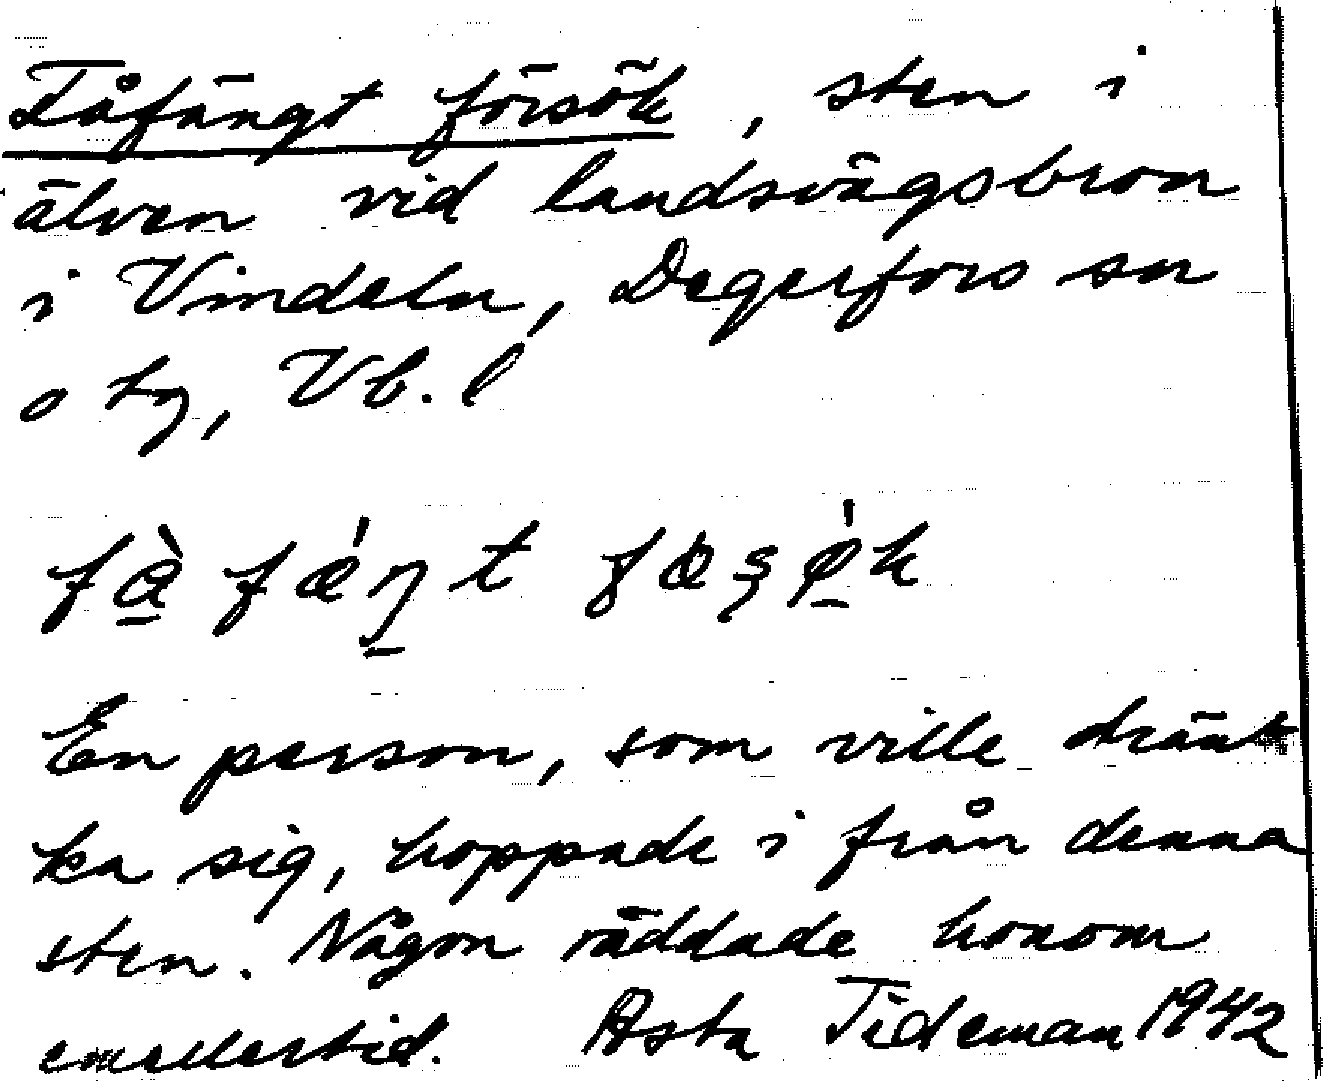 Fåfängt försök, sten i
älven vid landsvägsbron
i Vindeln, Degerfors sn
o tg, Vb. l
En person, som ville dränk
ka sig, hoppade i från denna
sten. Någon räddade honom
emellertid. Asta Tideman 1942